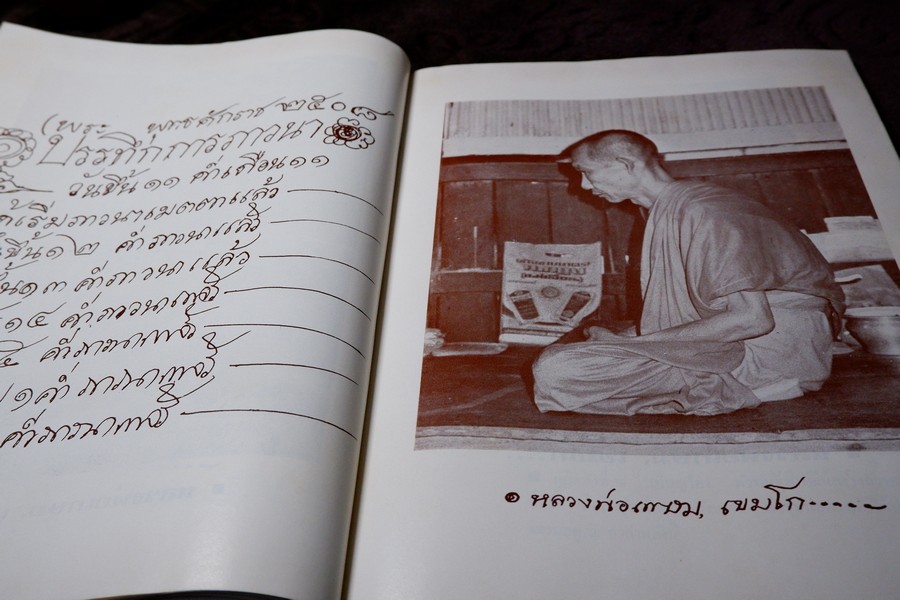 (พระ พุทธศักราช ๒๕๐๘
บันทึกการภาวนา
วันขึ้น ๑๑ ค่ำเดือน ๑๑
เริ่มภาวนาเมตตาแล้ว
ขึ้น ๑๒ ค่ำภาวนาแล้ว
๑๓ ค่ำภาวนาแล้ว
๑๔ ค่ำภาวนาแล้ว
ค่ำภาวนาแล้ว
๑ ค่ำภาวนาแล้ว
ค่ำภาวนาแล้ว
๏ หลวงพ่อเกษม, เขมโก